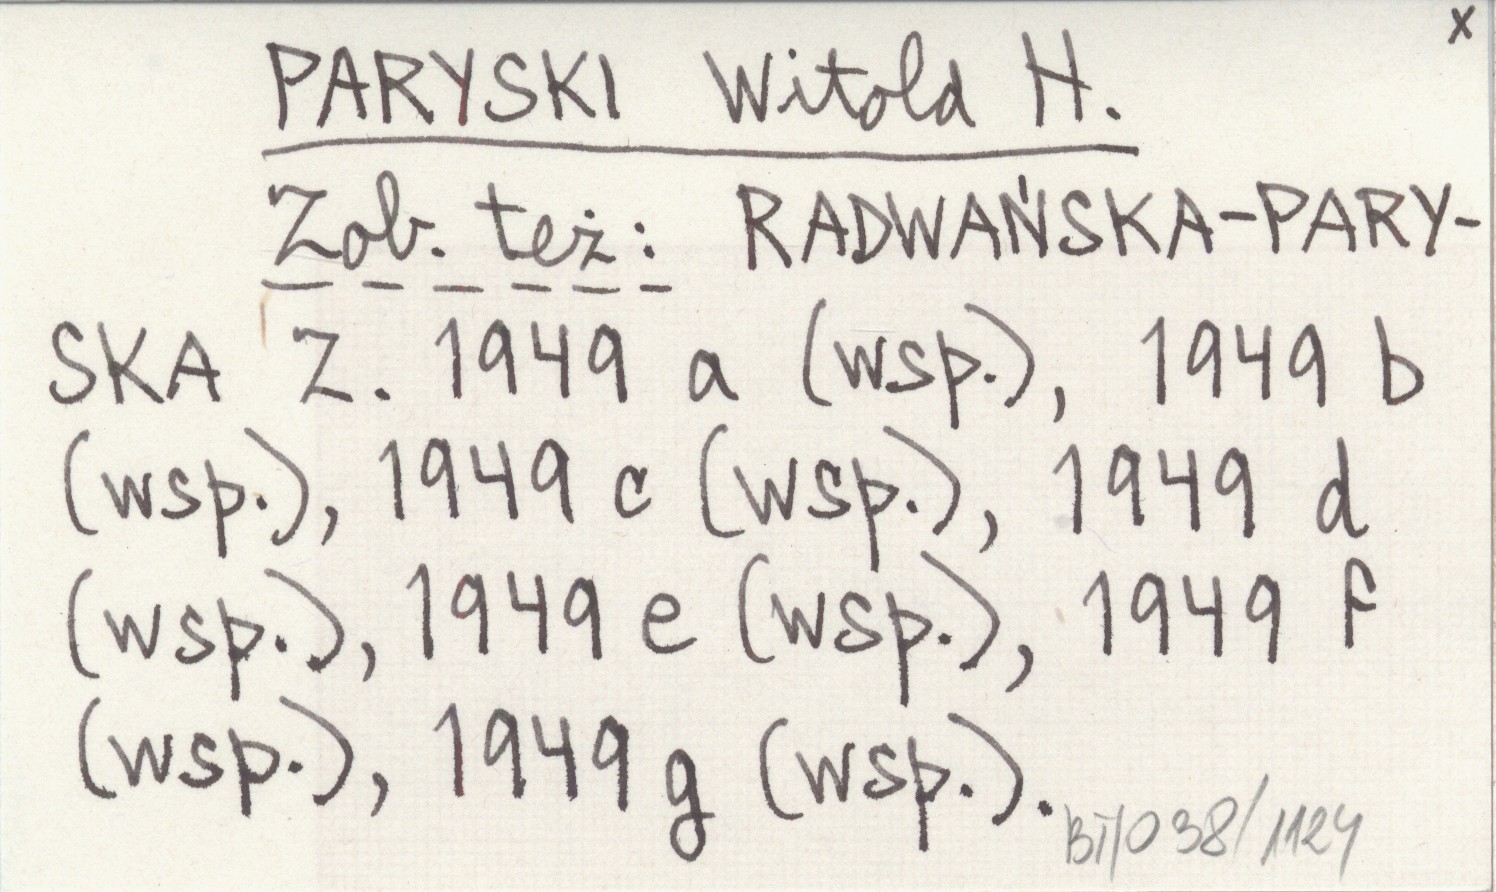 x
PARYSKI Witold H.
Zob. też: RADWAŃSKA-PARY-
SKA Z. 1949 a (wsp.), 1949 b
(wsp.), 1949 c (wsp.), 1949 d
(wsp.), 1949 e (wsp.), 1949 f
(wsp.), 1949 g (wsp.).
BT/038/1124